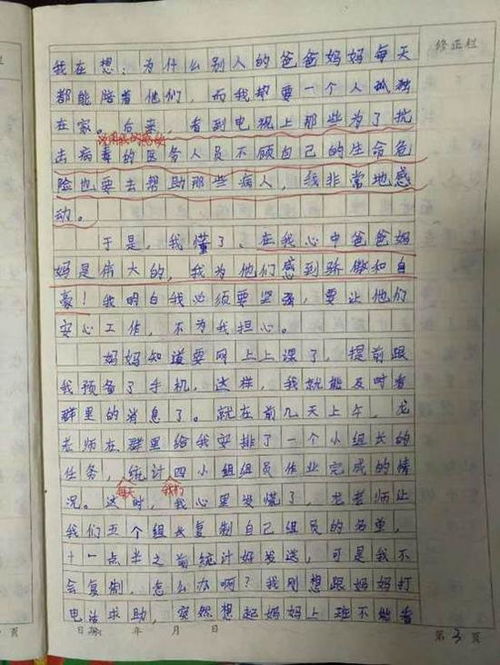 修正栏
我在想:为什么别人的爸爸妈妈每天
都能陪着他们,而我却要一个人孤独
在家。后来,看到电视上那些为了抗
击病毒的医务人员不顾自己的生命危
险也要去帮助那些病人,我非常地感
动。
于是,我懂了、在我心中爸爸妈
妈是伟大的,我为他们感到骄傲和自
豪!我明白我必须要坚强,要让他们
安心工作,不为我担心。
妈妈知道要网上上课了,提前跟
我预备了手机,这样,我就能及时看
群里的消息了。就在前几天上午,龙
老师在群里给我安排了一个小组长的
任务,统计四小组组员作业完成的情
每天 我们
况。这时,我心里发慌了,龙老师让
我们五个组长复制自己组员的名单,
十一点半之前统计好发送,可是我不
会复制,怎么办啊?我刚想跟妈妈打
电话求助,突然想起妈妈上班不能看
日期: 年 月 日
第3页